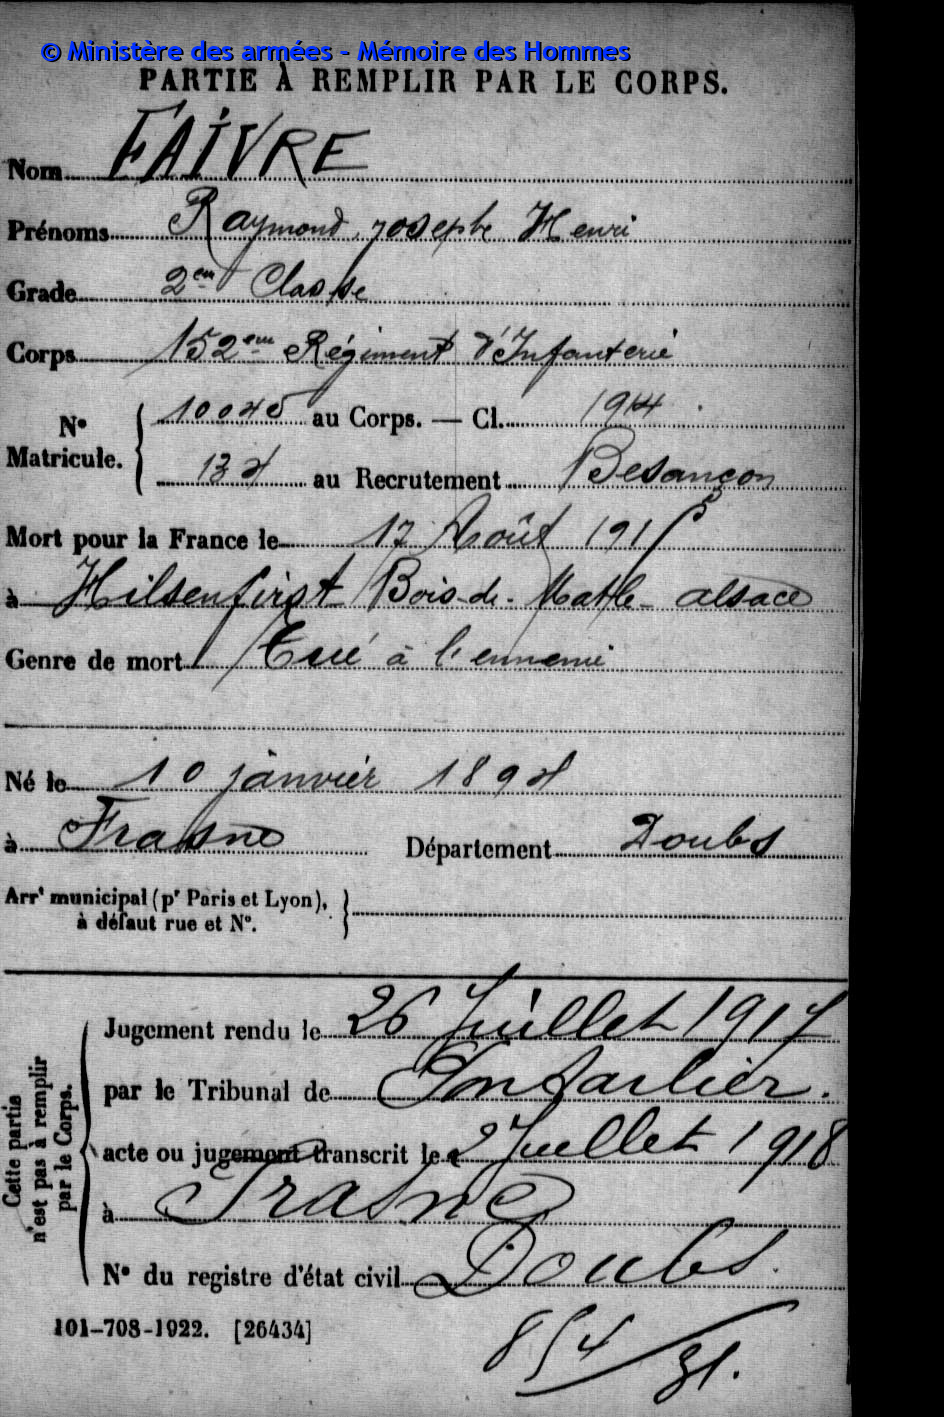 © Ministère des armées - Mémoire des Hommes
PARTIE À REMPLIR PAR LE CORPS.
Nom FAIVRE
Prénoms Raymond Joseph Henri
Grade 2em Classe
Corps 152em Régiment d'Infanterie
N° Matricule. 10045 au Corps. — Cl. 1914
134 au Recrutement Besançon
Mort pour la France le 17 Août 1915
à Hilsenfirst Bois-de- Alsace
Genre de mort Tué à l'ennemi
Né le 10 janvier 1894
à Frasne Département Doubs
Arrt municipal (pr Paris et Lyon),
à défaut rue et N°.
Cette partie
n'est pas à remplir
par le Corps.
Jugement rendu le 26 Juillet 1917
par le Tribunal de Pontarlier.
acte ou jugement transcrit le 2 Juillet 1918
à Frasne
N° du registre d'état civil Doubs.
101-708-1922. [26434]
854/31.